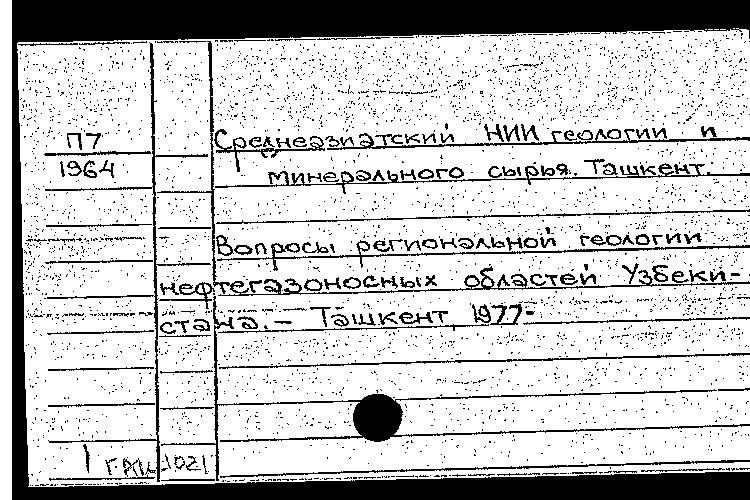 П7
1964
Среднеазиатский НИИ геологии и
минерального сырья. Ташкент.
Вопросы региональной геологии
нефтегазоносных областей Узбеки-
стана. – Ташкент, 1977-
1021